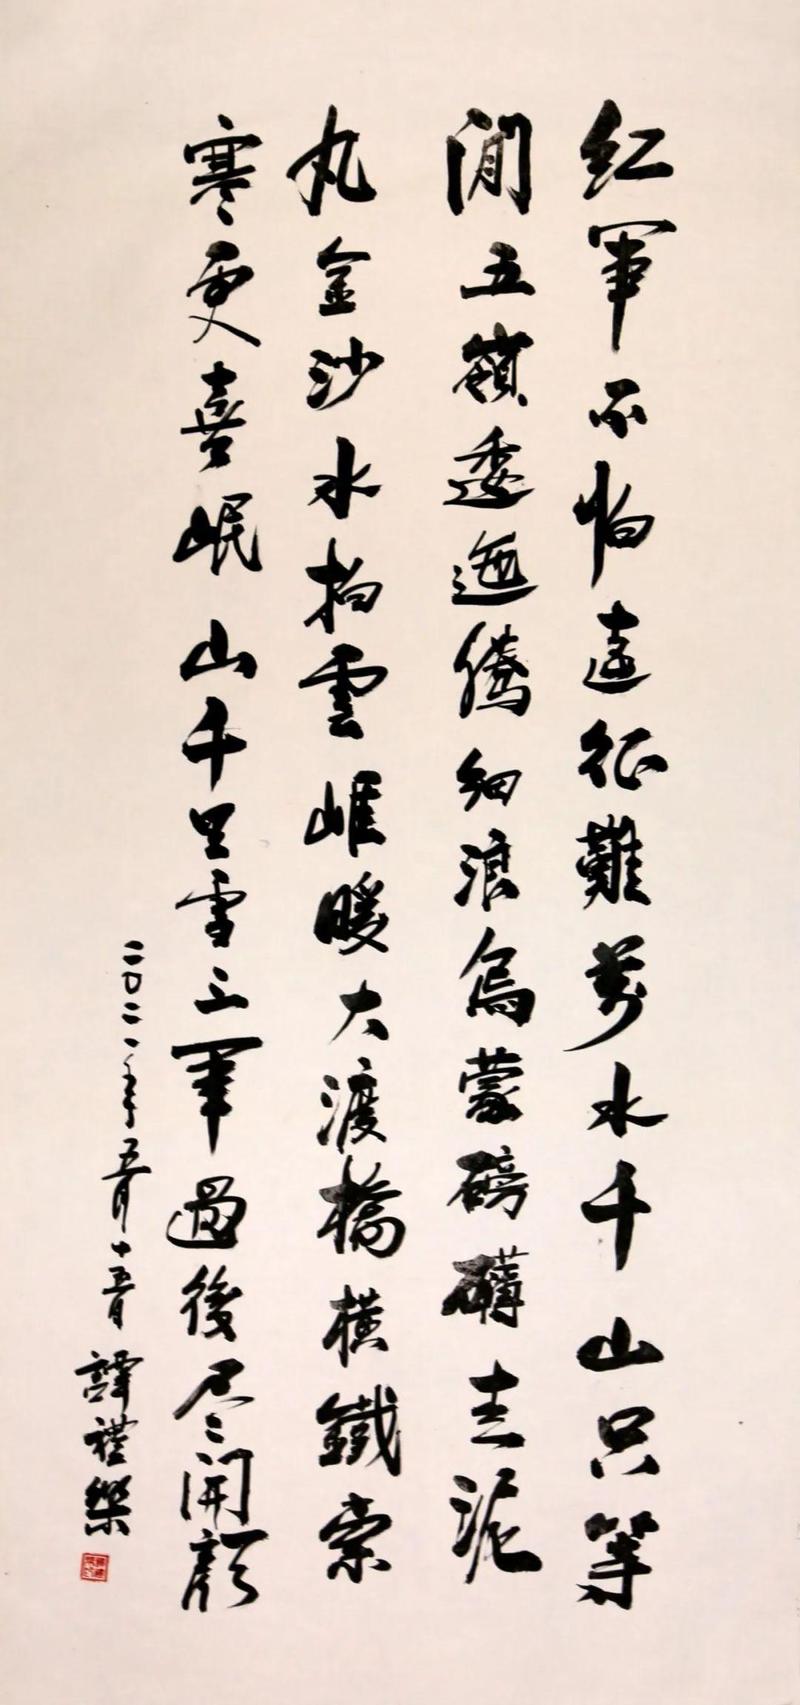 红軍不怕遠征難萬水千山只等
閒五嶺逶迤騰細浪烏蒙磅礴走泥
丸金沙水拍雲崖暖大渡橋橫鐵索
寒更喜岷山千里雪三軍過後尽開顏
二〇二一年五月十五日
譚禮樂